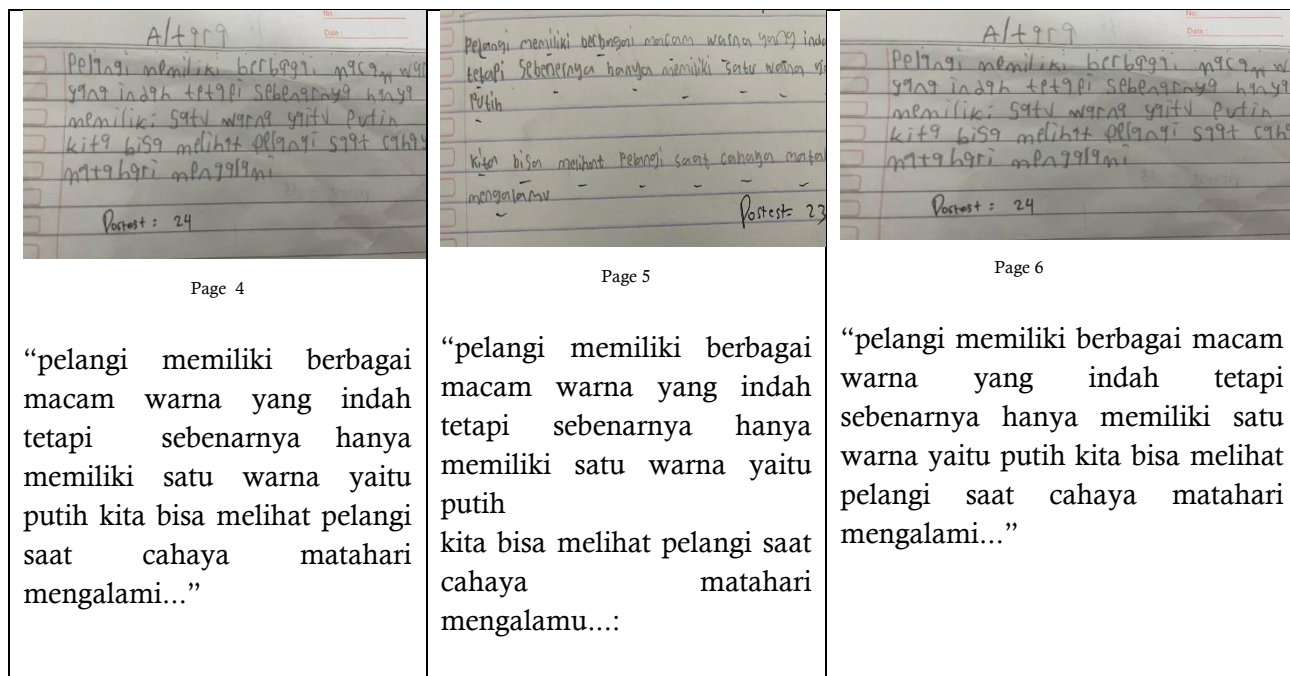 No.
Date :
Altara
Pelangi memiliki berbagai macam wa
yang indah tetapi sebenarnya hanya
memiliki satu warna yaitu Putih
kita bisa melihat pelangi saat cahay
matahari mengalami
Postest : 24
Page 4
“pelangi memiliki berbagai
macam warna yang indah
tetapi sebenarnya hanya
memiliki satu warna yaitu
putih kita bisa melihat pelangi
saat cahaya matahari
mengalami...”
Pelangi memiliki berbagai macam warna yang inda
tetapi sebenernya hanya memiliki satu warna
Putih
kita bisa melihat Pelangi saat cahaya mata
mengalamu
Postest= 23
Page 5
“pelangi memiliki berbagai
macam warna yang indah
tetapi sebenarnya hanya
memiliki satu warna yaitu
putih
kita bisa melihat pelangi saat
cahaya matahari
mengalamu...:
No.
Date :
Altara
Pelangi memiliki berbagai macam w
yang indah tetapi sebenarnya hanya
memiliki satu warna yaitu Putih
kita bisa melihat pelangi saat cah
matahari mengalami
Postest : 24
Page 6
“pelangi memiliki berbagai macam
warna yang indah tetapi
sebenarnya hanya memiliki satu
warna yaitu putih kita bisa melihat
pelangi saat cahaya matahari
mengalami...”